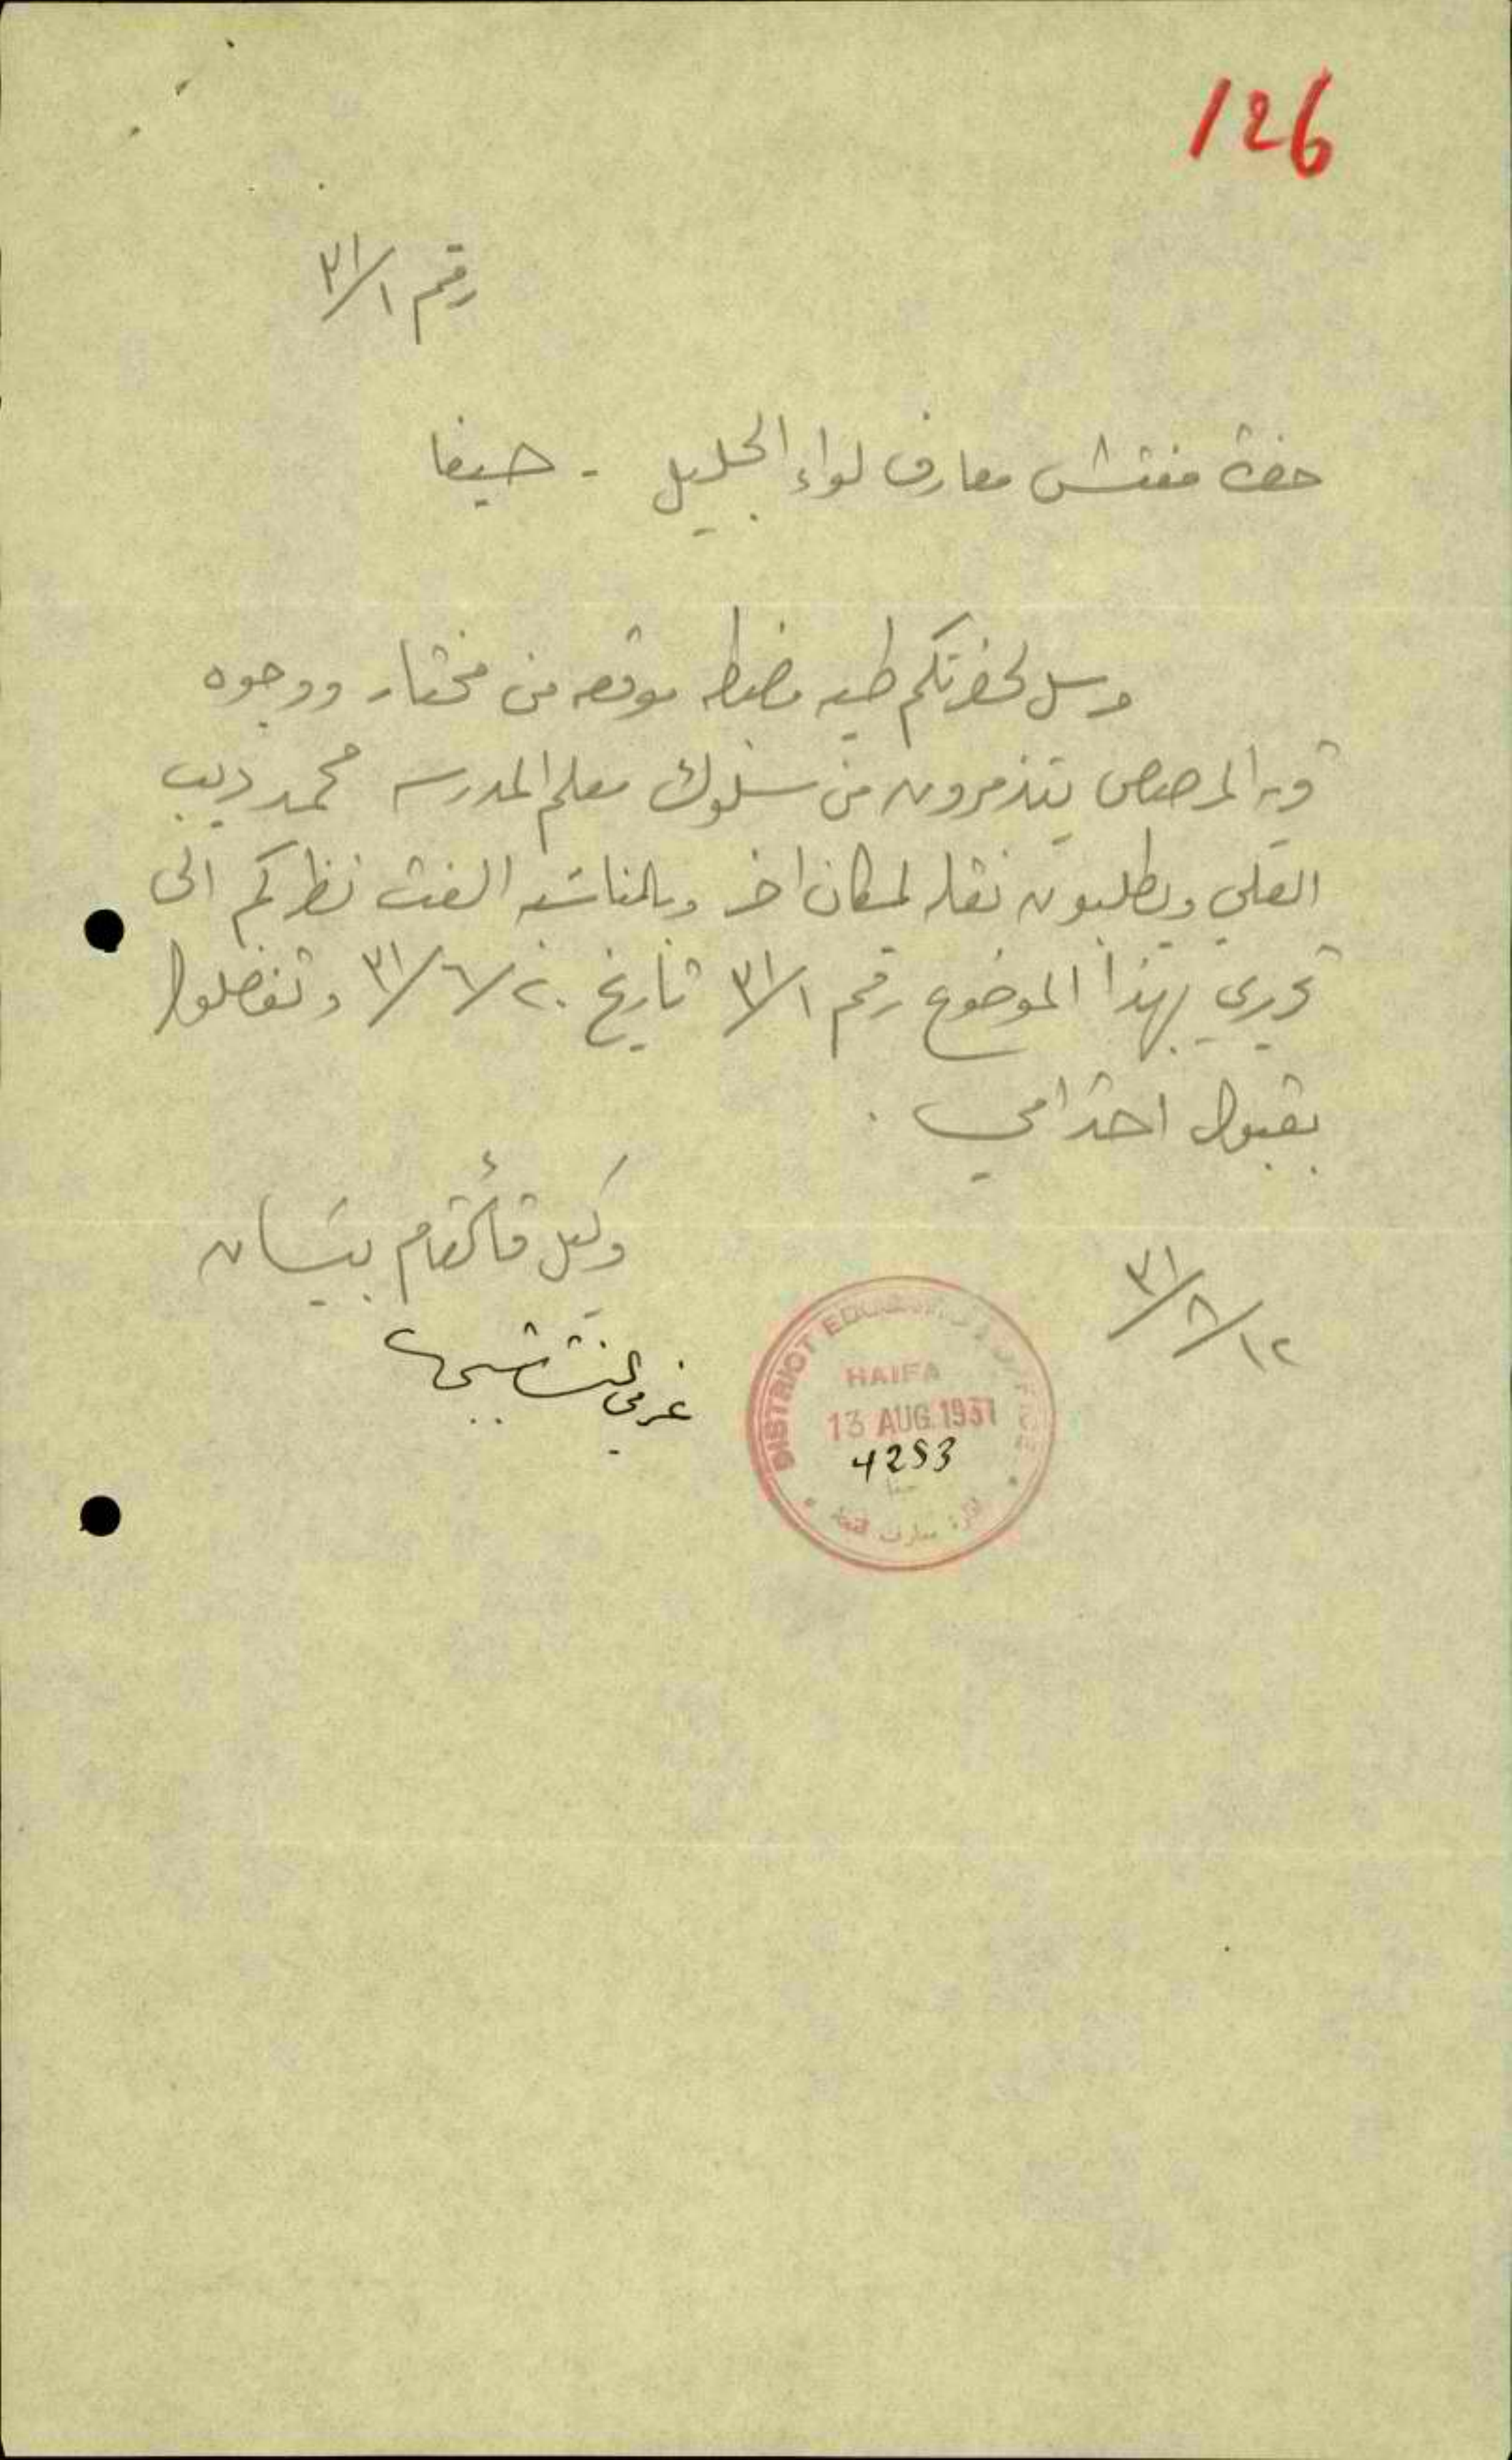 126
رقم ٣١/١
حضرة مفتش معارف لواء الجليل - حيفا
مرسل لحضرتكم طيه مضبطه موقعه من مختار ووجوه
قرية المرصص يتذمرون من سلوك معلم المدرسه محمد ديب
القلي ويطلبون نقله لمكان اخر وبالمناسبه الفت نظركم الى
تحريري بهذا الموضوع رقم ٣١/١ تاريخ ٣١/٦/٢٠ وتفضلوا
بقبول احترامي .
وكيل قائمقام بيسان
٣١/٨/١٢
DISTRICT
HAIFA
13 AUG 1931
4253
معارف